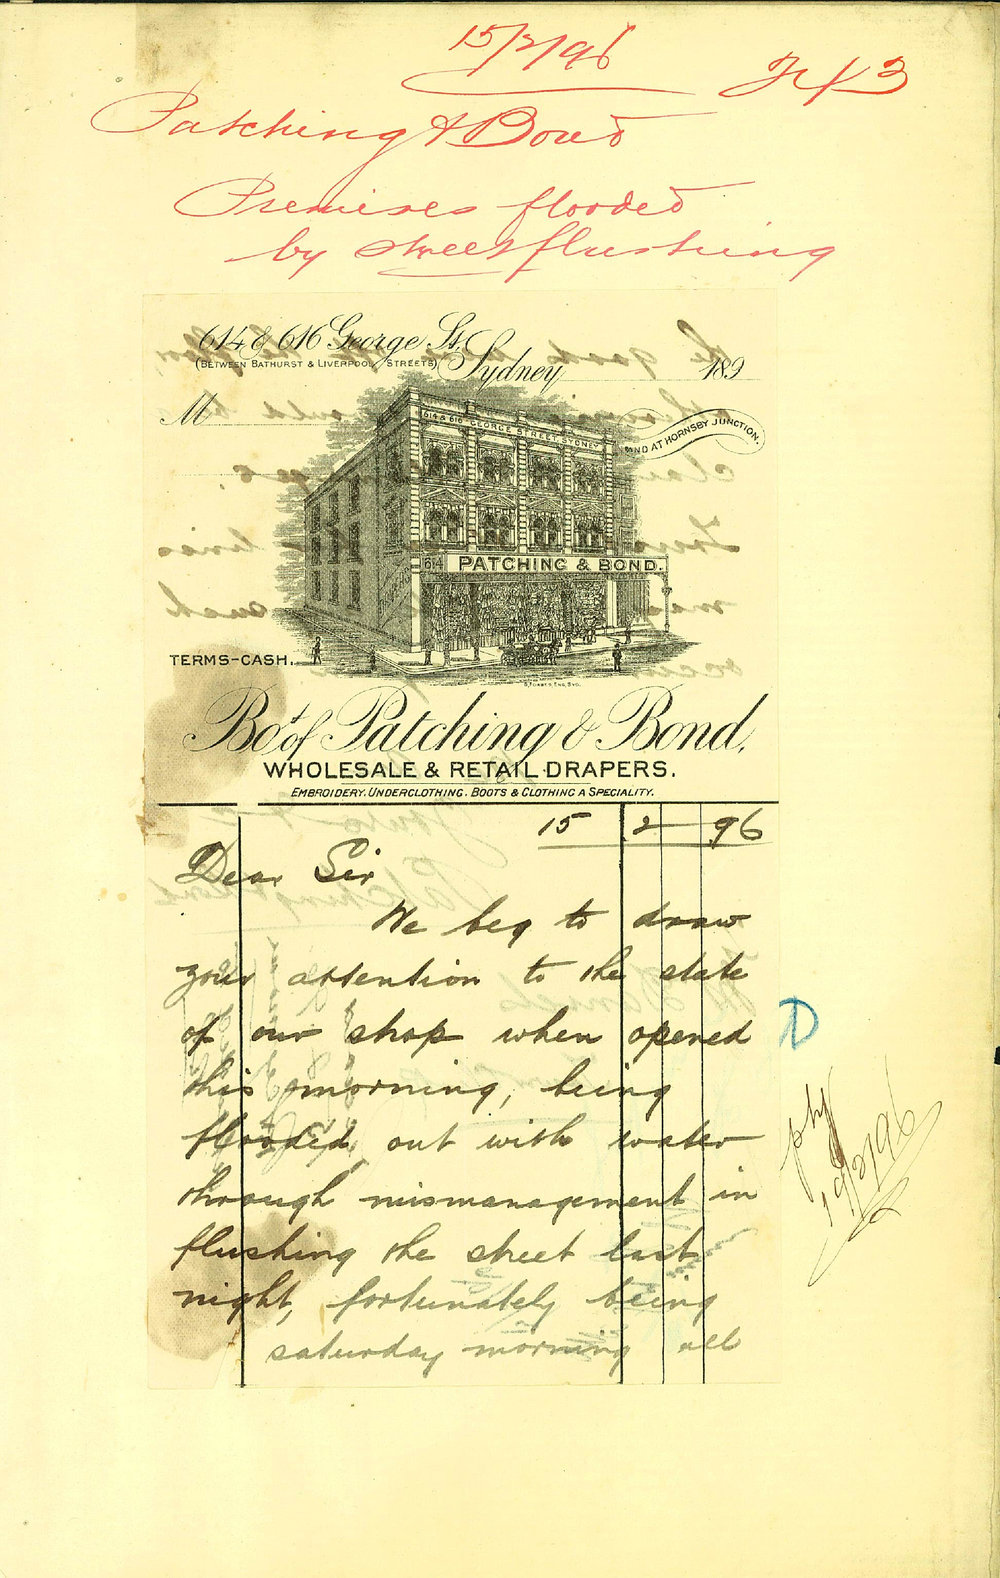 15/2/96
Patching & Bond
Premises flooded
by street flushing
614 & 616 George St.
(BETWEEN BATHURST & LIVERPOOL STREETS)
Sydney 189
M
AND AT HORNSBY JUNCTION.
614 & 616 GEORGE STREET SYDNEY
614 PATCHING & BOND.
TERMS-CASH.
Bot. of Patching & Bond,
WHOLESALE & RETAIL DRAPERS.
EMBROIDERY, UNDERCLOTHING, BOOTS & CLOTHING A SPECIALITY.
15 2 96
Dear Sir
We beg to draw
your attention to the state
of our shop when opened
this morning, being
flooded out with water
through mismanagement in
flushing the street last
night, fortunately being
saturday morning all
D
19/2/96